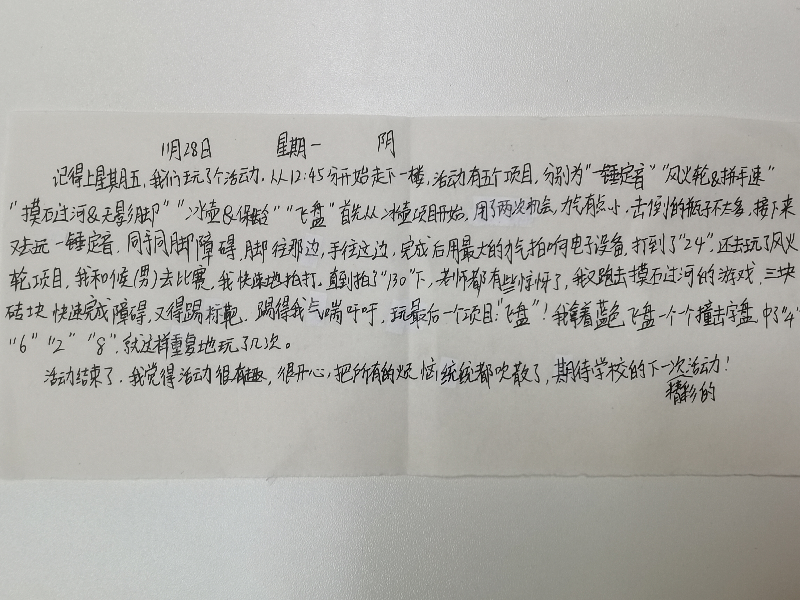 11月28日 星期一 阴
记得上星期五,我们玩了个活动.从12:45分开始走下一楼,活动有五个项目,分别为"一锤定音""风火轮&拼手速"
"摸石过河&无影脚""冰壶&保龄""飞盘"首先从冰壶项目开始,用了两次机会,力气有点小,击倒的瓶子不太多,接下来
又去玩一锤定音,同手同脚障碍,脚往那边,手往这边,完成后用最大的力气拍响电子设备,打到了"24".还去玩了风火
轮项目,我和候(男)去比赛,我快速地拍打.直到拍了"130"下,老师都有些惊讶了,我又跑去摸石过河的游戏,三块
砖块快速完成障碍,又得踢标靶.踢得我气喘吁吁,玩最后一个项目:"飞盘"!我拿着蓝色飞盘一个一个撞击字盘,中了"4"
"6""2""8",就这样重复地玩了几次。
活动结束了,我觉得活动很有趣,很开心,把所有的烦恼统统都吹散了,期待学校的下一次活动!
精彩的